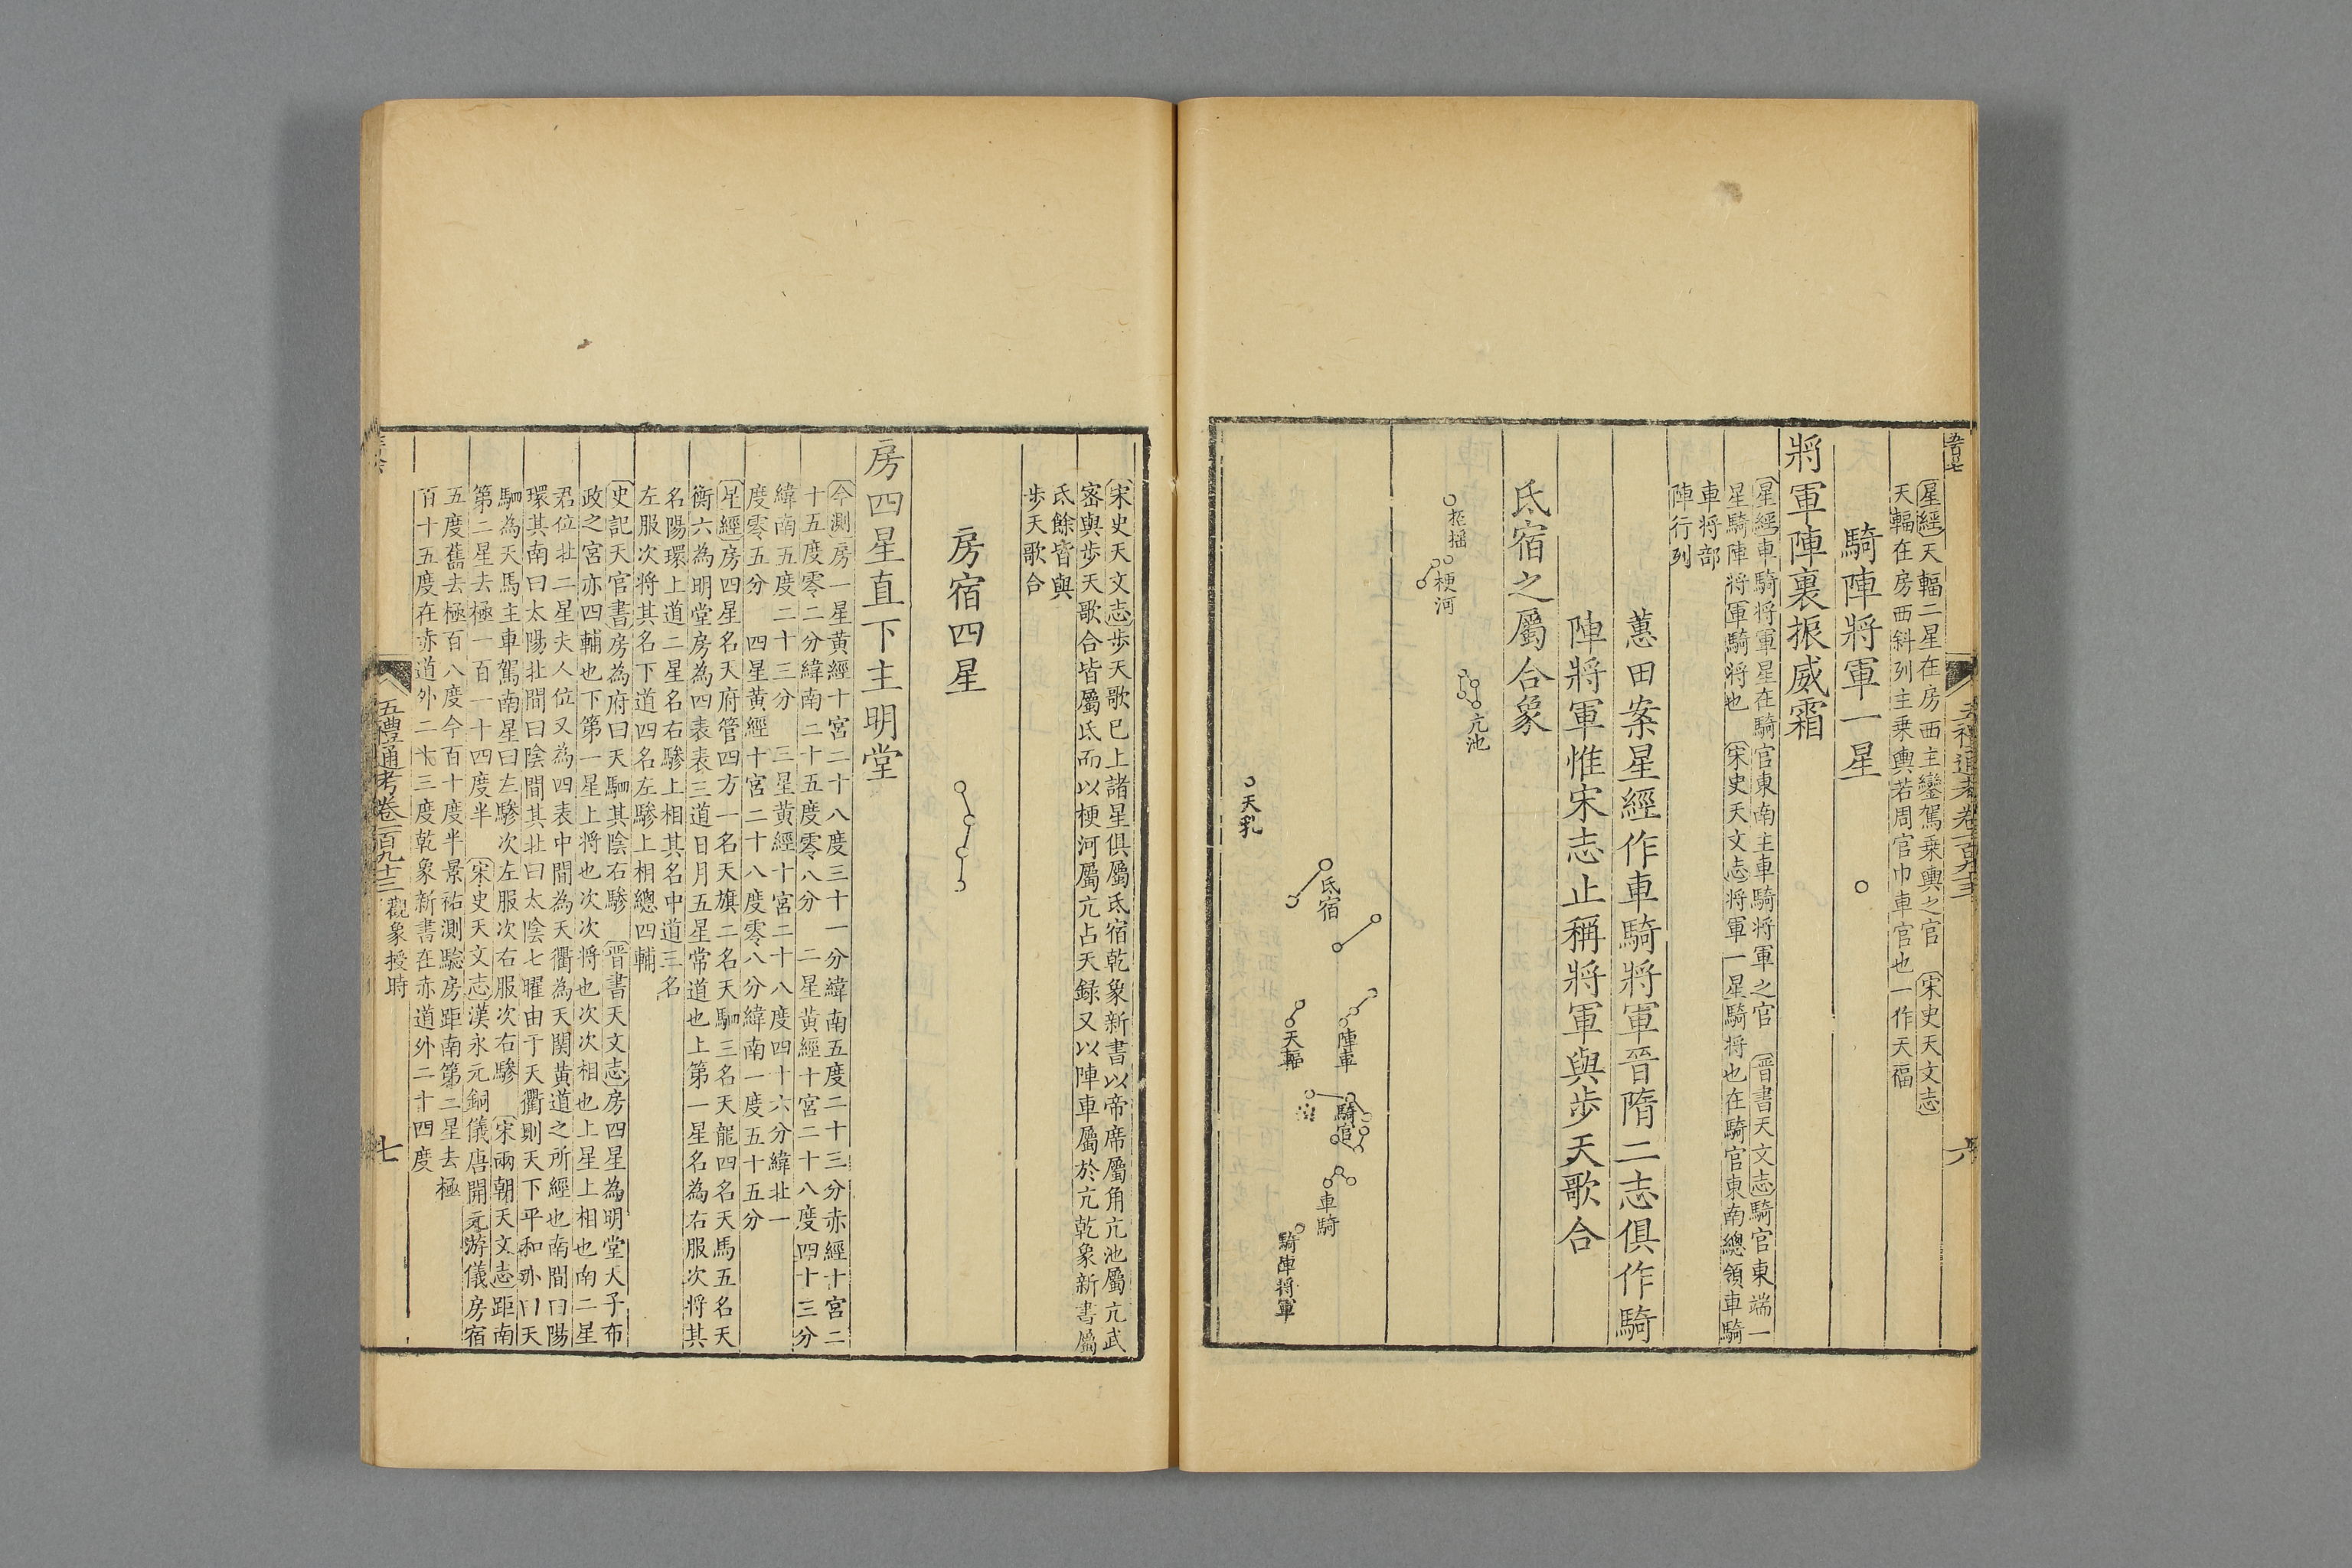 星經天輻二星在房西主鑾駕乗輿之官 宋史天文志
天輻在房西斜列主乗輿若周官巾車官也一作天福
騎陣將軍一星
將軍陣裏振威霜
星經車騎将軍星在騎官東南主車騎将軍之官 晉書天文志騎官東端一
星騎陣将軍騎将也 宋史天文志将軍一星騎将也在騎官東南總領車騎
車将部
陣行列
蕙田案星經作車騎將軍晉隋二志俱作騎
陣將軍惟宋志止稱將軍與步天歌合
氐宿之屬合象
招搖
梗河
亢池
氐宿
陣車
騎官
車騎
天輻
騎陣将軍
天乳
宋史天文志步天歌已上諸星俱屬氐宿乾象新書以帝席屬角亢池屬亢武
宻與步天歌合皆屬氐而以梗河屬亢占天録又以陣車屬於亢乾象新書屬
氐餘皆與
步天歌合
房宿四星
房四星直下主明堂
今測房一星黄經十宮二十八度三十一分緯南五度二十三分赤經十宮二
十五度零二分緯南二十五度零八分 二星黄經十宮二十八度四十三分
緯南五度二十三分 三星黄經十宮二十八度四十六分緯北一
度零五分 四星黄經十宮二十八度零八分緯南一度五十五分
星經房四星名天府管四方一名天旗二名天駟三名天龍四名天馬五名天
衡六為明堂房為四表表三道日月五星常道也上第一星名為右服次将其
名陽環上道二星名右驂上相其名中道三名
左服次将其名下道四名左驂上相總四輔
史記天官書房為府曰天駟其陰右驂 晉書天文志房四星為明堂天子布
政之宮亦四輔也下第一星上将也次次将也次次相也上星上相也南二星
君位北二星夫人位又為四表中間為天衢為天関黄道之所經也南間曰陽
環其南曰太陽北間曰陰間其北曰太陰七曜由于天衢則天下平和亦曰天
駟為天馬主車駕南星曰左驂次左服次右服次右驂 宋兩朝天文志距南
第二星去極一百一十四度半 宋史天文志漢永元銅儀唐開元游儀房宿
五度舊去極百八度今百十度半景祐測驗房距南第二星去極
百十五度在赤道外二十三度乾象新書在赤道外二十四度
五禮通考卷一百九十三 觀象授時
七